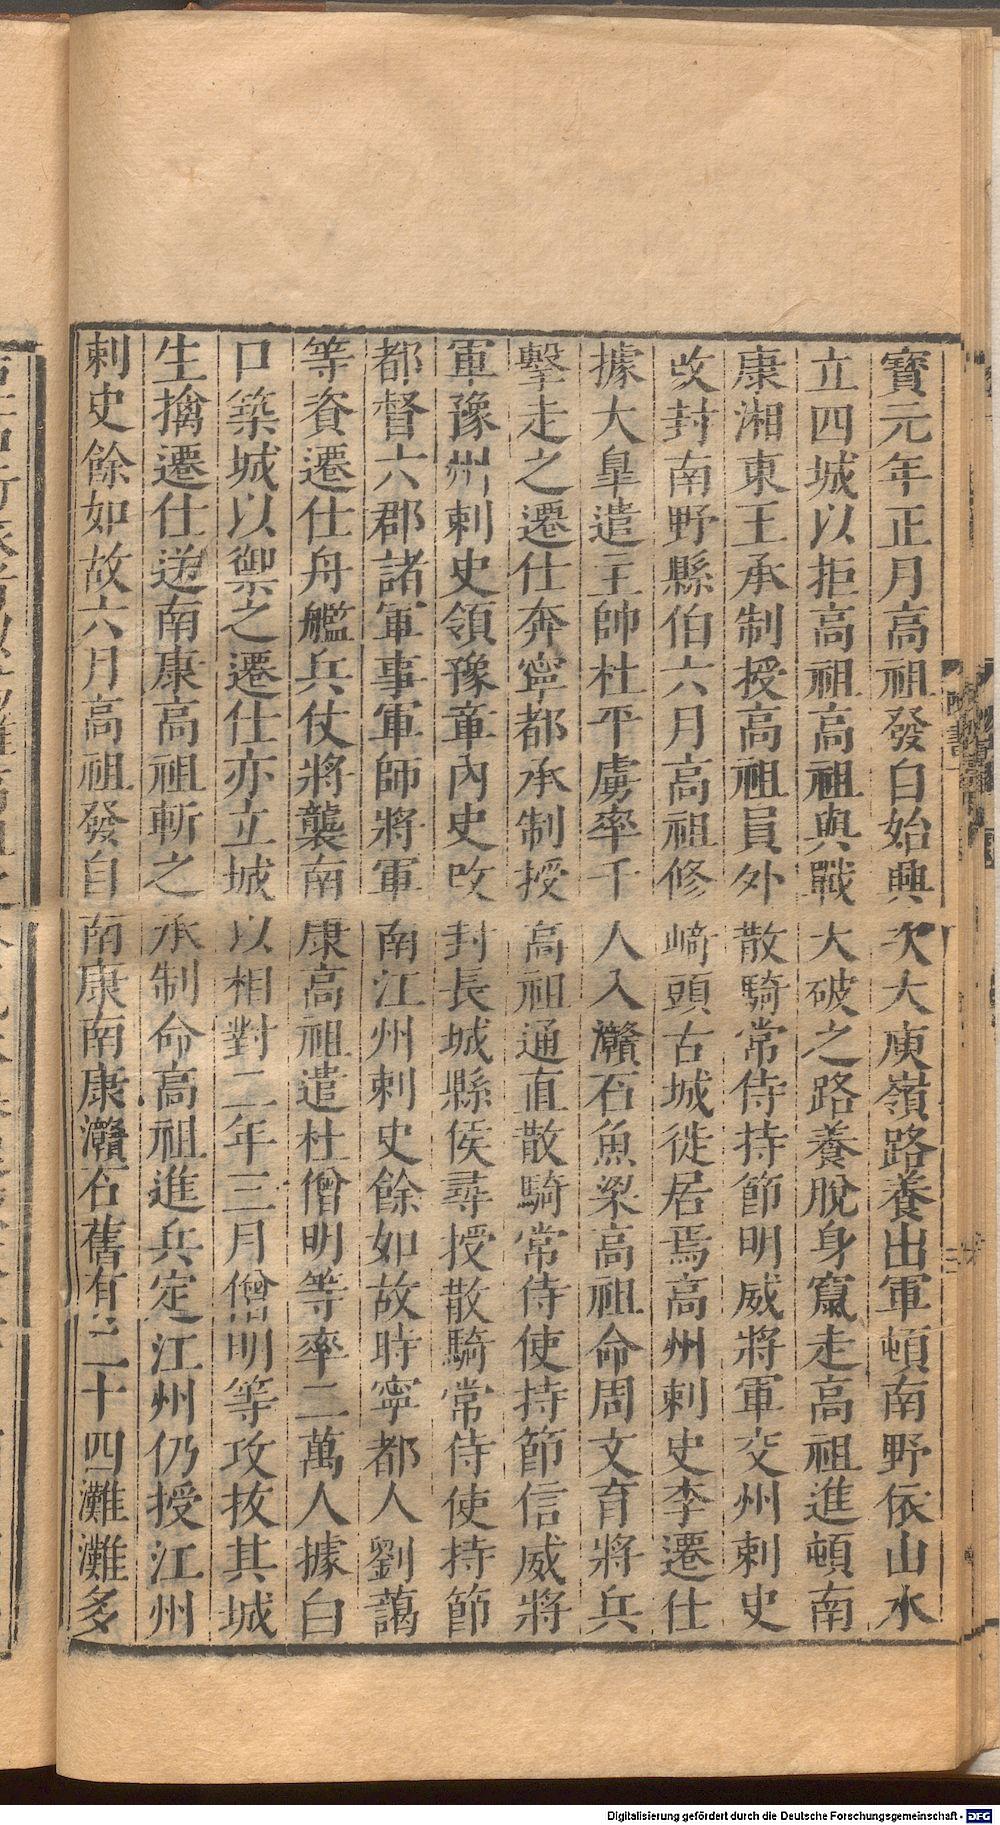 寶元年正月高祖發自始興次大庾嶺路養出軍頓南野依山水
立四城以拒高祖高祖與戰大破之路養脫身竄走高祖進頓南
康湘東王承制授高祖員外散騎常侍持節明威將軍交州刺史
改封南野縣伯六月高祖修崎頭古城徙居焉高州刺史李遷仕
據大臯遣主帥杜平虜率千人入灨石魚梁高祖命周文育將兵
擊走之遷仕奔寧都承制授高祖通直散騎常侍使持節信威將
軍豫州刺史領豫章內史改封長城縣侯尋授散騎常侍使持節
都督六郡諸軍事軍師將軍南江州刺史餘如故時寧都人劉藹
等資遷仕舟艦兵仗將襲南康高祖遣杜僧明等率二萬人據白
口築城以禦之遷仕亦立城以相對二年三月僧明等攻拔其城
生擒遷仕送南康高祖斬之承制命高祖進兵定江州仍授江州
刺史餘如故六月高祖發自南康南康灨石舊有二十四灘灘多
Digitalisierung gefördert durch die Deutsche Forschungsgemeinschaft - DFG